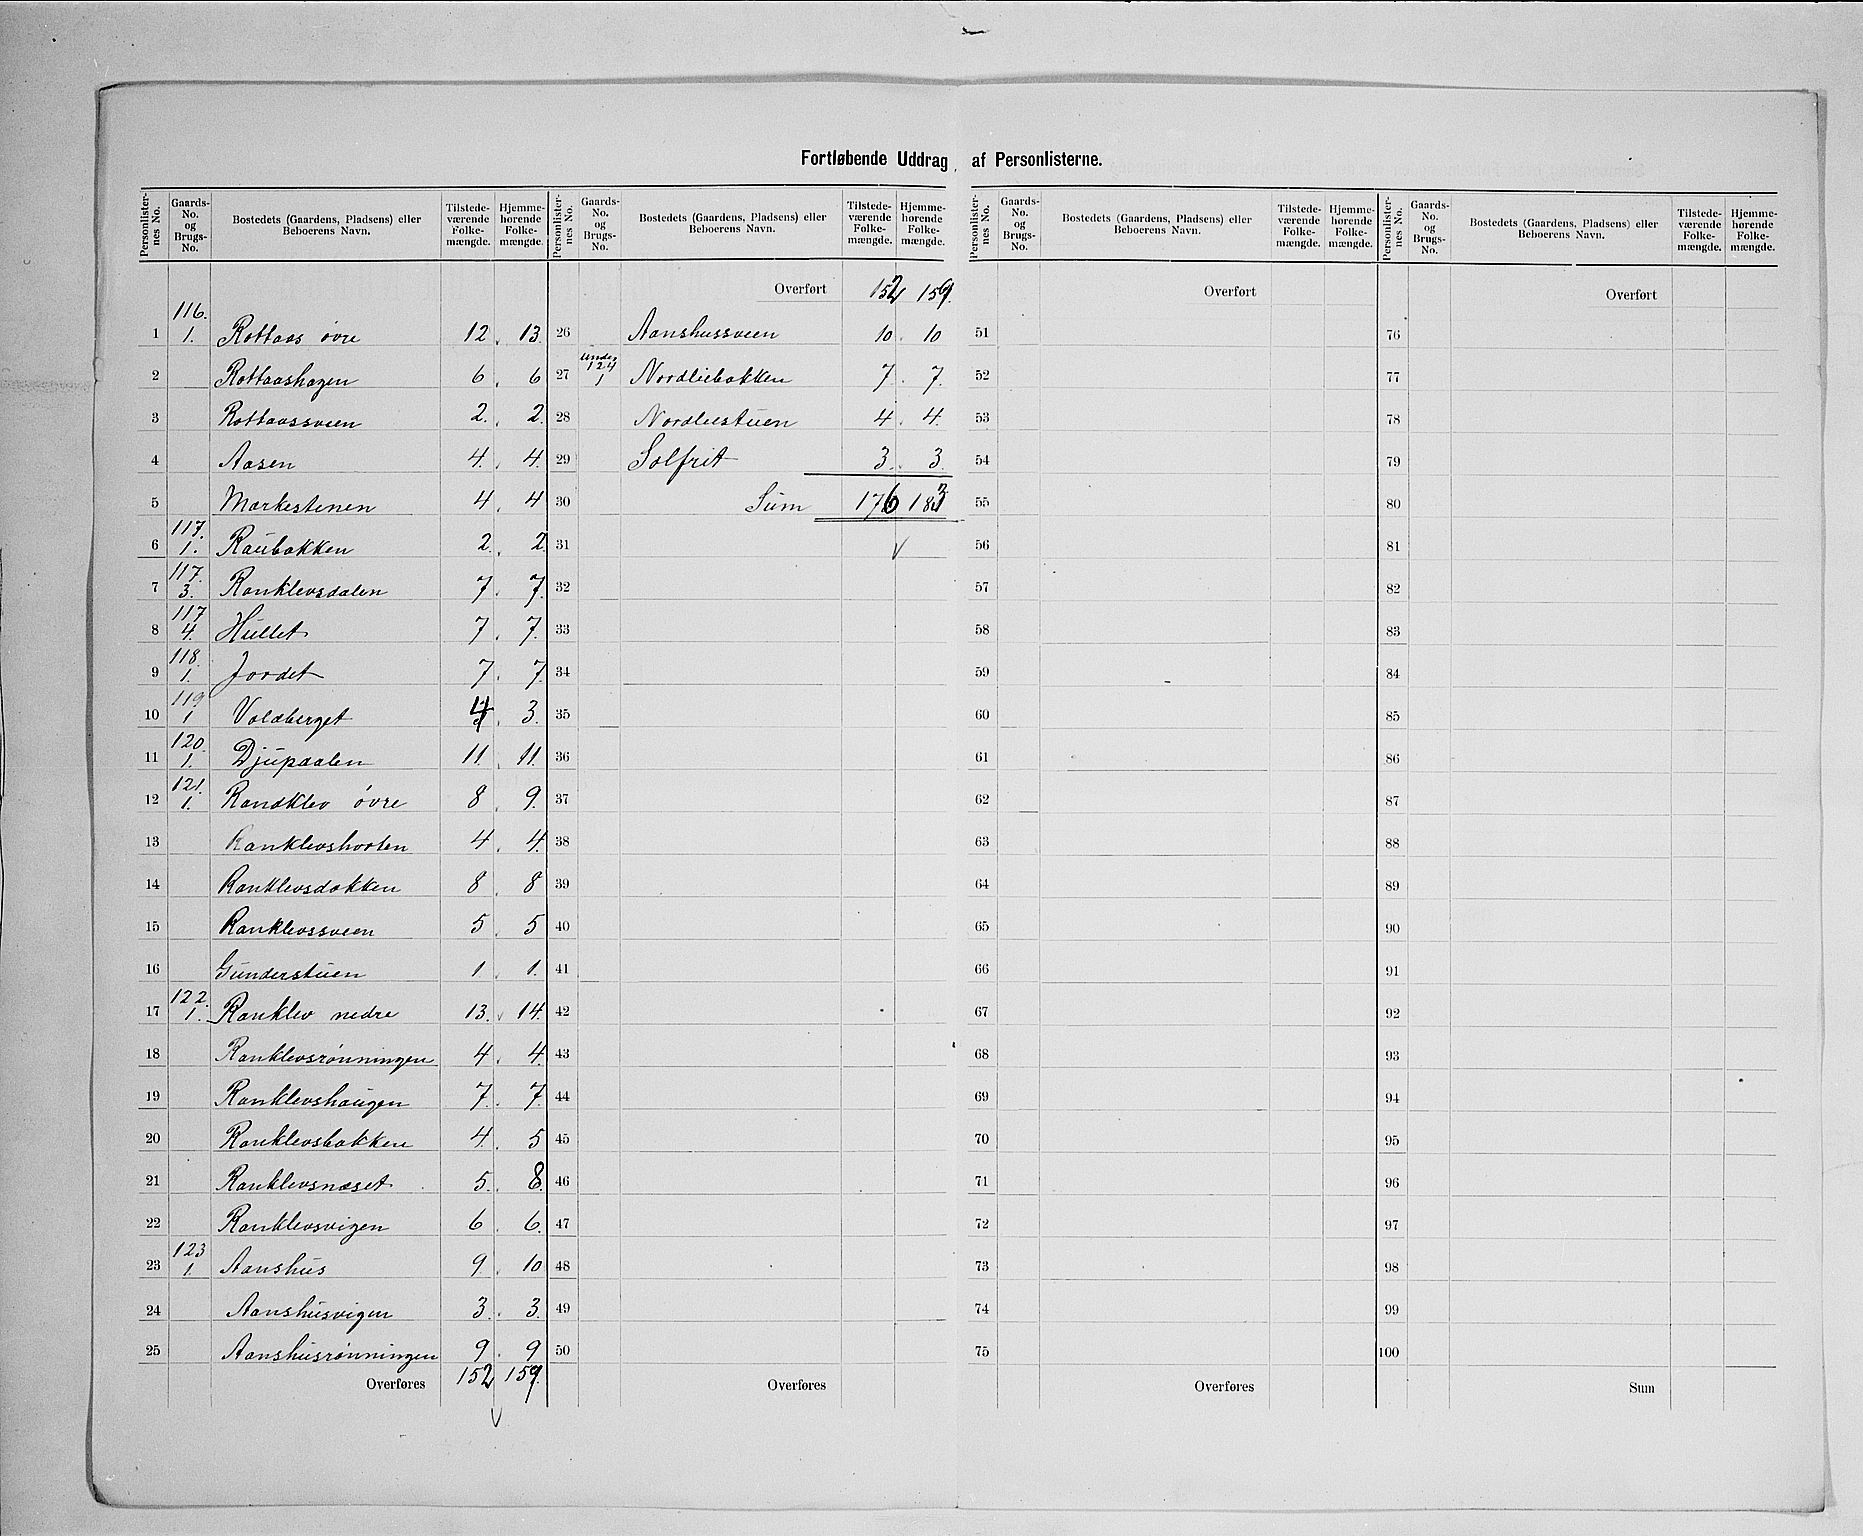 Fortløbende Uddrag af Personlisterne.
Personlisternes No. Gaards-No. og Brugs-No. Bostedets (Gaardens, Pladsens) eller Beboerens Navn. Tilstedeværende Folkemængde. Hjemmehørende Folkemængde. Personlisternes No. Gaards-No. og Brugs-No. Bostedets (Gaardens, Pladsens) eller Beboerens Navn. Tilstedeværende Folkemængde. Hjemmehørende Folkemængde. Personlisternes No. Gaards-No. og Brugs-No. Bostedets (Gaardens, Pladsens) eller Beboerens Navn. Tilstedeværende Folkemængde. Hjemmehørende Folkemængde. Personlisternes No. Gaards-No. og Brugs-No. Bostedets (Gaardens, Pladsens) eller Beboerens Navn. Tilstedeværende Folkemængde. Hjemmehørende Folkemængde.
Overført 152 159. Overført Overført
1 116. 1. Rottaas øvre 12. 13. 26 Aanshussveen 10. 10 51 76
2 Rottaashagen 6. 6 27 under 124 1 Nordliebakken 7. 7. 52 77
3 Rottaassveen 2. 2. 28 Nordliestuen 4. 4. 53 78
4 Aasen 4. 4. 29 Solfrit 3. 3. 54 79
5 Markestenen 4. 4 30 Sum 176 183 55 80
6 117. 1. Raubakken 2. 2. 31 56 81
7 117. 3. Ranklevsdalen 7. 7. 32 57 82
8 117 4. Hullet 7. 7. 33 58 83
9 118. 1. Jordet 7. 7. 34 59 84
10 119 1 Voldberget 4. 3. 35 60 85
11 120. 1. Djupdalen 11. 11. 36 61 86
12 121. 1. Randklev øvre 8. 9. 37 62 87
13 Ranklevshorten 4. 4. 38 63 88
14 Ranklevsdokken 8. 8 39 64 89
15 Ranklevssveen 5. 5 40 65 90
16 Gunderstuen 1. 1. 41 66 91
17 122. 1. Ranklev nedre 13. 14. 42 67 92
18 Ranklevsrønningen 4. 4. 43 68 93
19 Ranklevshaugen 7. 7. 44 69 94
20 Ranklevsbakken 4. 5 45 70 95
21 Ranklevsnæset 5. 8. 46 71 96
22 Ranklevsvigen 6. 6. 47 72 97
23 123 1. Aanshus 9. 10 48 73 98
24 Aanshusvigen 3. 3. 49 74 99
25 Aanshusrønningen 9. 9 50 75 100
Overføres 152 159. Overføres Overføres Sum